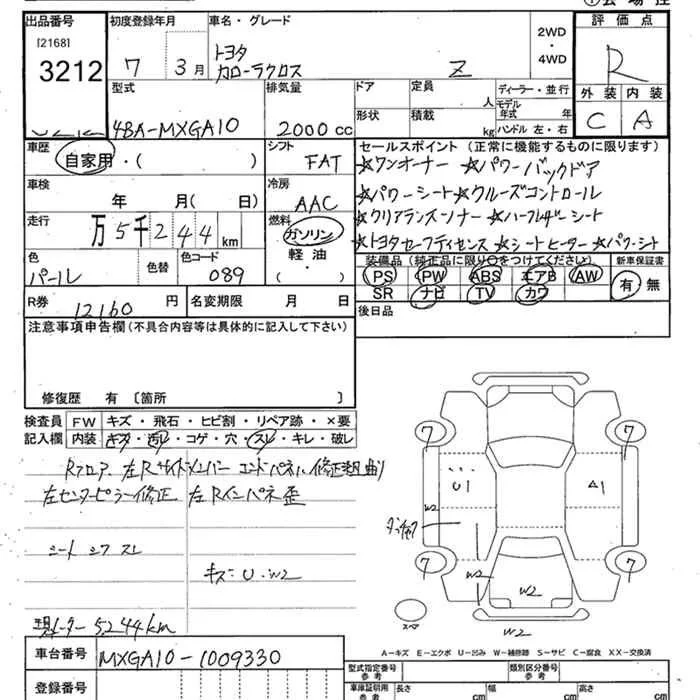 出品番号 初度登録年月 車名・グレード 評価点
[2168] トヨタ 2WD
3212 7 3月 カローラクロス Z ・ R
4WD
型式 排気量 ドア 定員 ディーラー・並行 外装 内装
人 モデル年式 年
4BA-MXGA10 2000cc 形状 積載 kg ハンドル 左・右 C A
車歴 シフト セールスポイント(正常に機能するものに限ります)
自家用・( ) FAT ☆ワンオーナー ☆パワーバックドア
車検 冷房 ☆パワーシート☆クルーズコントロール
年 月( 日) AAC ☆クリアランスソナー ☆ハーフレザーシート
走行 燃料 ☆トヨタセーフティセンス ☆シートヒーター ☆パワーシート
万5千244km ガソリン
色 色替 色コード 軽油 装備品(純正品に限り○をつけてください) 新車保証書
パール 089 ・( ) PS PW ABS エアB AW 有 無
R券 12160円 名変期限 月 日 SR ナビ TV カワ
注意事項申告欄(不具合内容等は具体的に記入して下さい) 後日品
修復歴 有 〔箇所 〕
検査員 FW キズ・飛石・ヒビ割・リペア跡・×要
記入欄 内装 キズ・汚レ・コゲ・穴・スレ・キレ・破レ
Rフロア 左Rサイドメンバー エンドパネル修正粗曲り
左センターピラー修正 左Rインパネ歪
シート シワ スレ
キズ:U・W2
現メーター 5,244km
7 7
U1 A1
W2
7 7
W2 W2
スペア
W2
A-キズ E-エクボ U-凹み W-補修跡 S-サビ C-腐食 XX-交換済
車台番号 MXGA10-1009330
型式指定番号 参考 類別区分番号 参考
登録番号 車庫証明用 参考 長さ cm 幅 cm 高さ cm